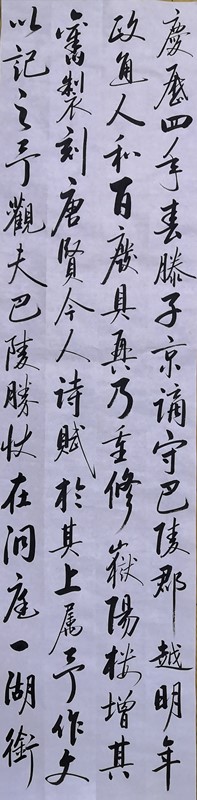 慶曆四年春滕子京謫守巴陵郡越明年
政通人和百廢具興乃重修嶽陽樓增其
舊製刻唐賢今人詩賦於其上属予作文
以記之予觀夫巴陵勝狀在洞庭一湖銜